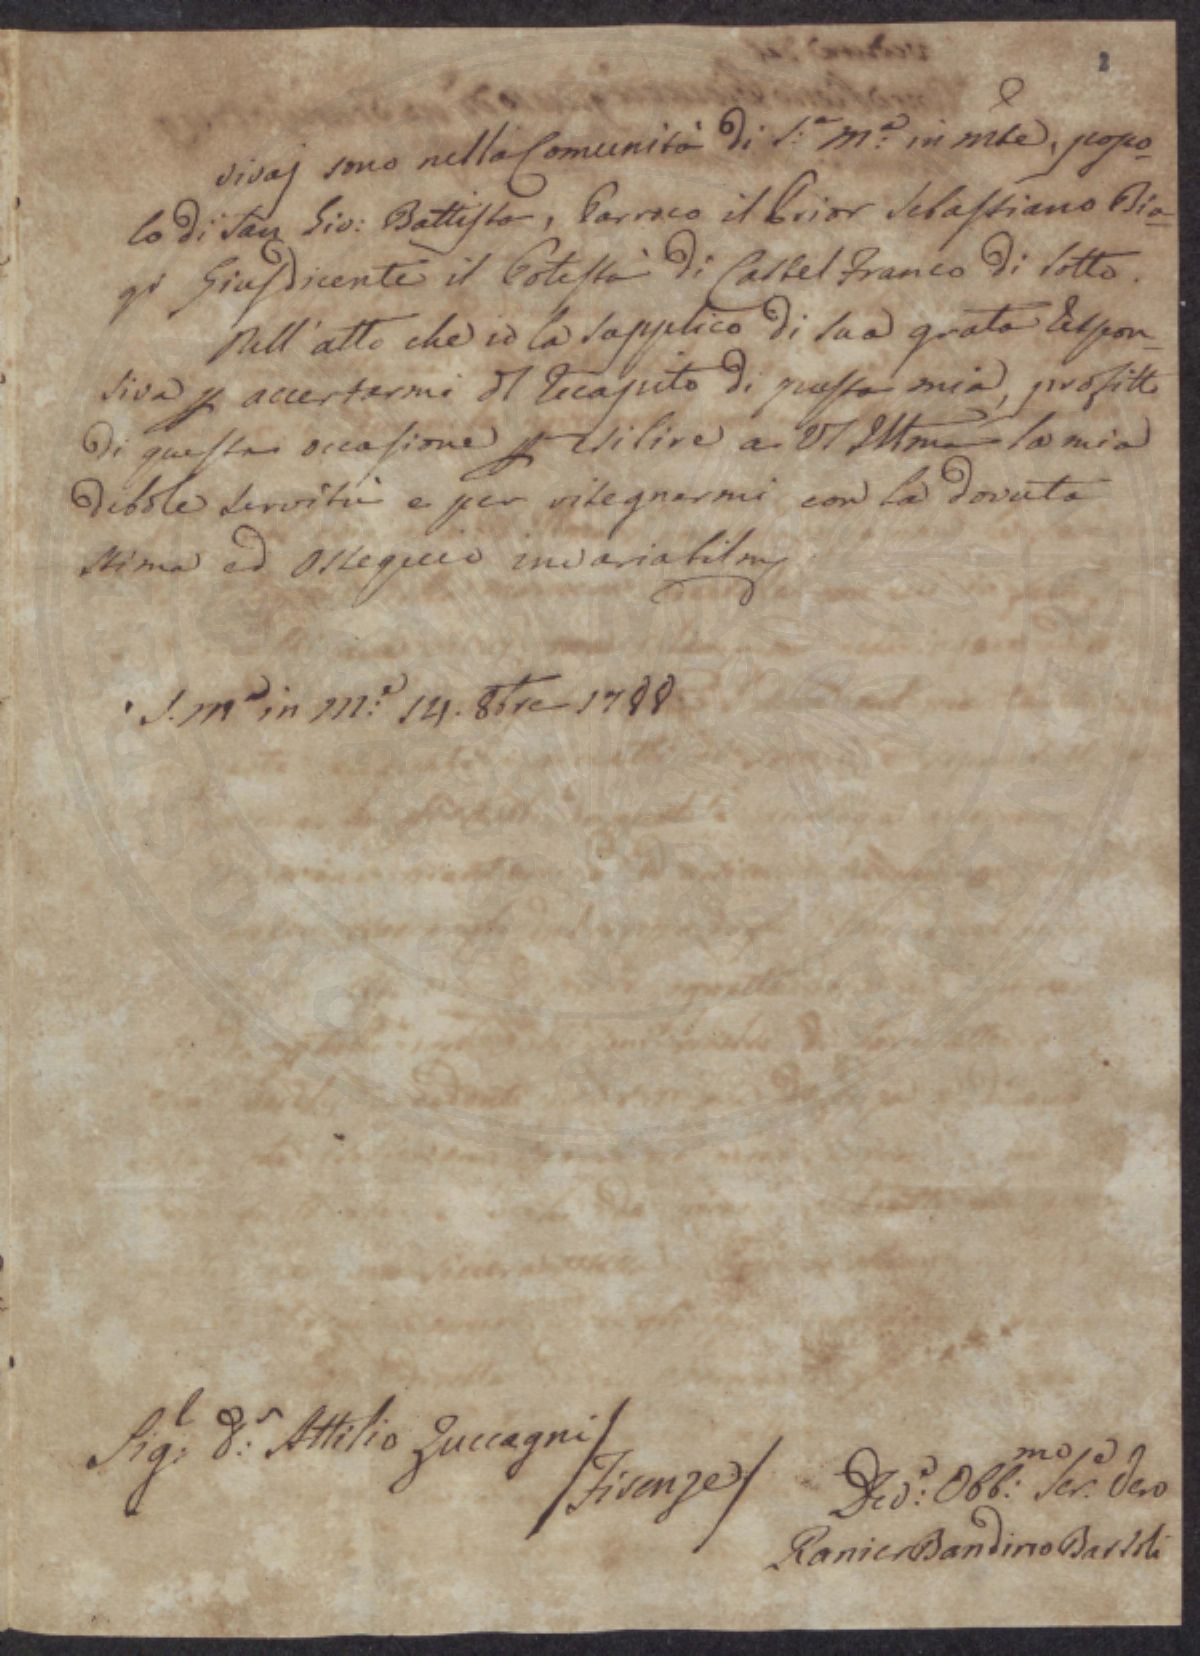 2
vivaj sono nella Comunità di S.a M.a in Mte, popo-
lo di San Gio: Battista, Parroco il Prior Sebastiano Bia-
gi Giusdicente il Potestà di Castel Franco di Sotto.
Nell' atto che io la supplico di sua grata Respon-
siva p accertarmi del Recapito di questa mia, profitto
di questa occasione p esibire a VS Illma la mia
debole servitù e per risegnarmi con la dovuta
stima ed ossequio invariabilm
S. Ma in M.e 14. 8bre 1788
Sig.l D.r Attilio Zuccagni /
/ Firenze /
Dev.o Obb.mo Ser.e Vero
Ranier Bandino Bartoli